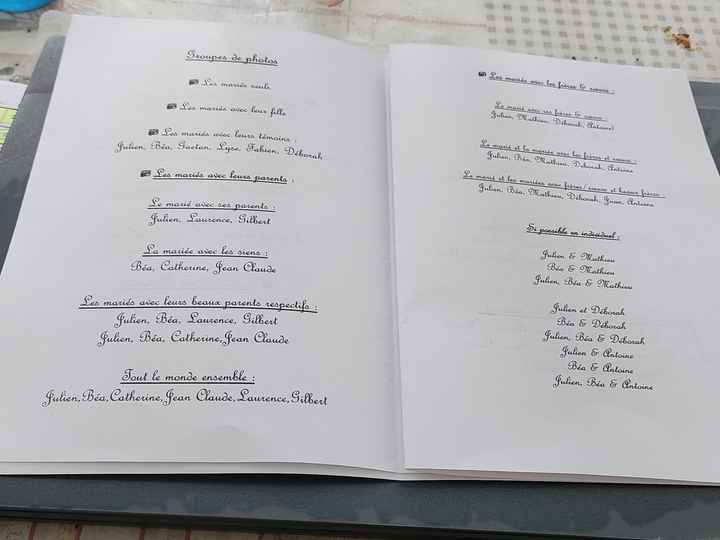 Groupes de photos
Les mariés seuls
Les mariés avec leur fille
Les mariés avec leurs témoins :
Julien, Béa, Gaetan, Lyse, Fabien, Déborah
Les mariés avec leurs parents :
Le marié avec ses parents :
Julien, Laurence, Gilbert
La mariée avec les siens :
Béa, Catherine, Jean Claude
Les mariés avec leurs beaux parents respectifs :
Julien, Béa, Laurence, Gilbert
Julien, Béa, Catherine, Jean Claude
Tout le monde ensemble :
Julien, Béa, Catherine, Jean Claude, Laurence, Gilbert
Les mariés avec les frères & sœurs :
Le marié avec ses frères & sœurs :
Julien, Mathieu, Déborah, Antoine)
Le marié et la mariée avec les frères et sœurs :
Julien, Béa, Mathieu, Déborah, Antoine
Le marié et les mariées avec frères/sœurs et beaux frères :
Julien, Béa, Mathieu, Déborah, Antoine
Si possible en individuel :
Julien & Mathieu
Béa & Mathieu
Julien, Béa & Mathieu
Julien et Déborah
Béa & Déborah
Julien, Béa & Déborah
Julien & Antoine
Béa & Antoine
Julien, Béa & Antoine